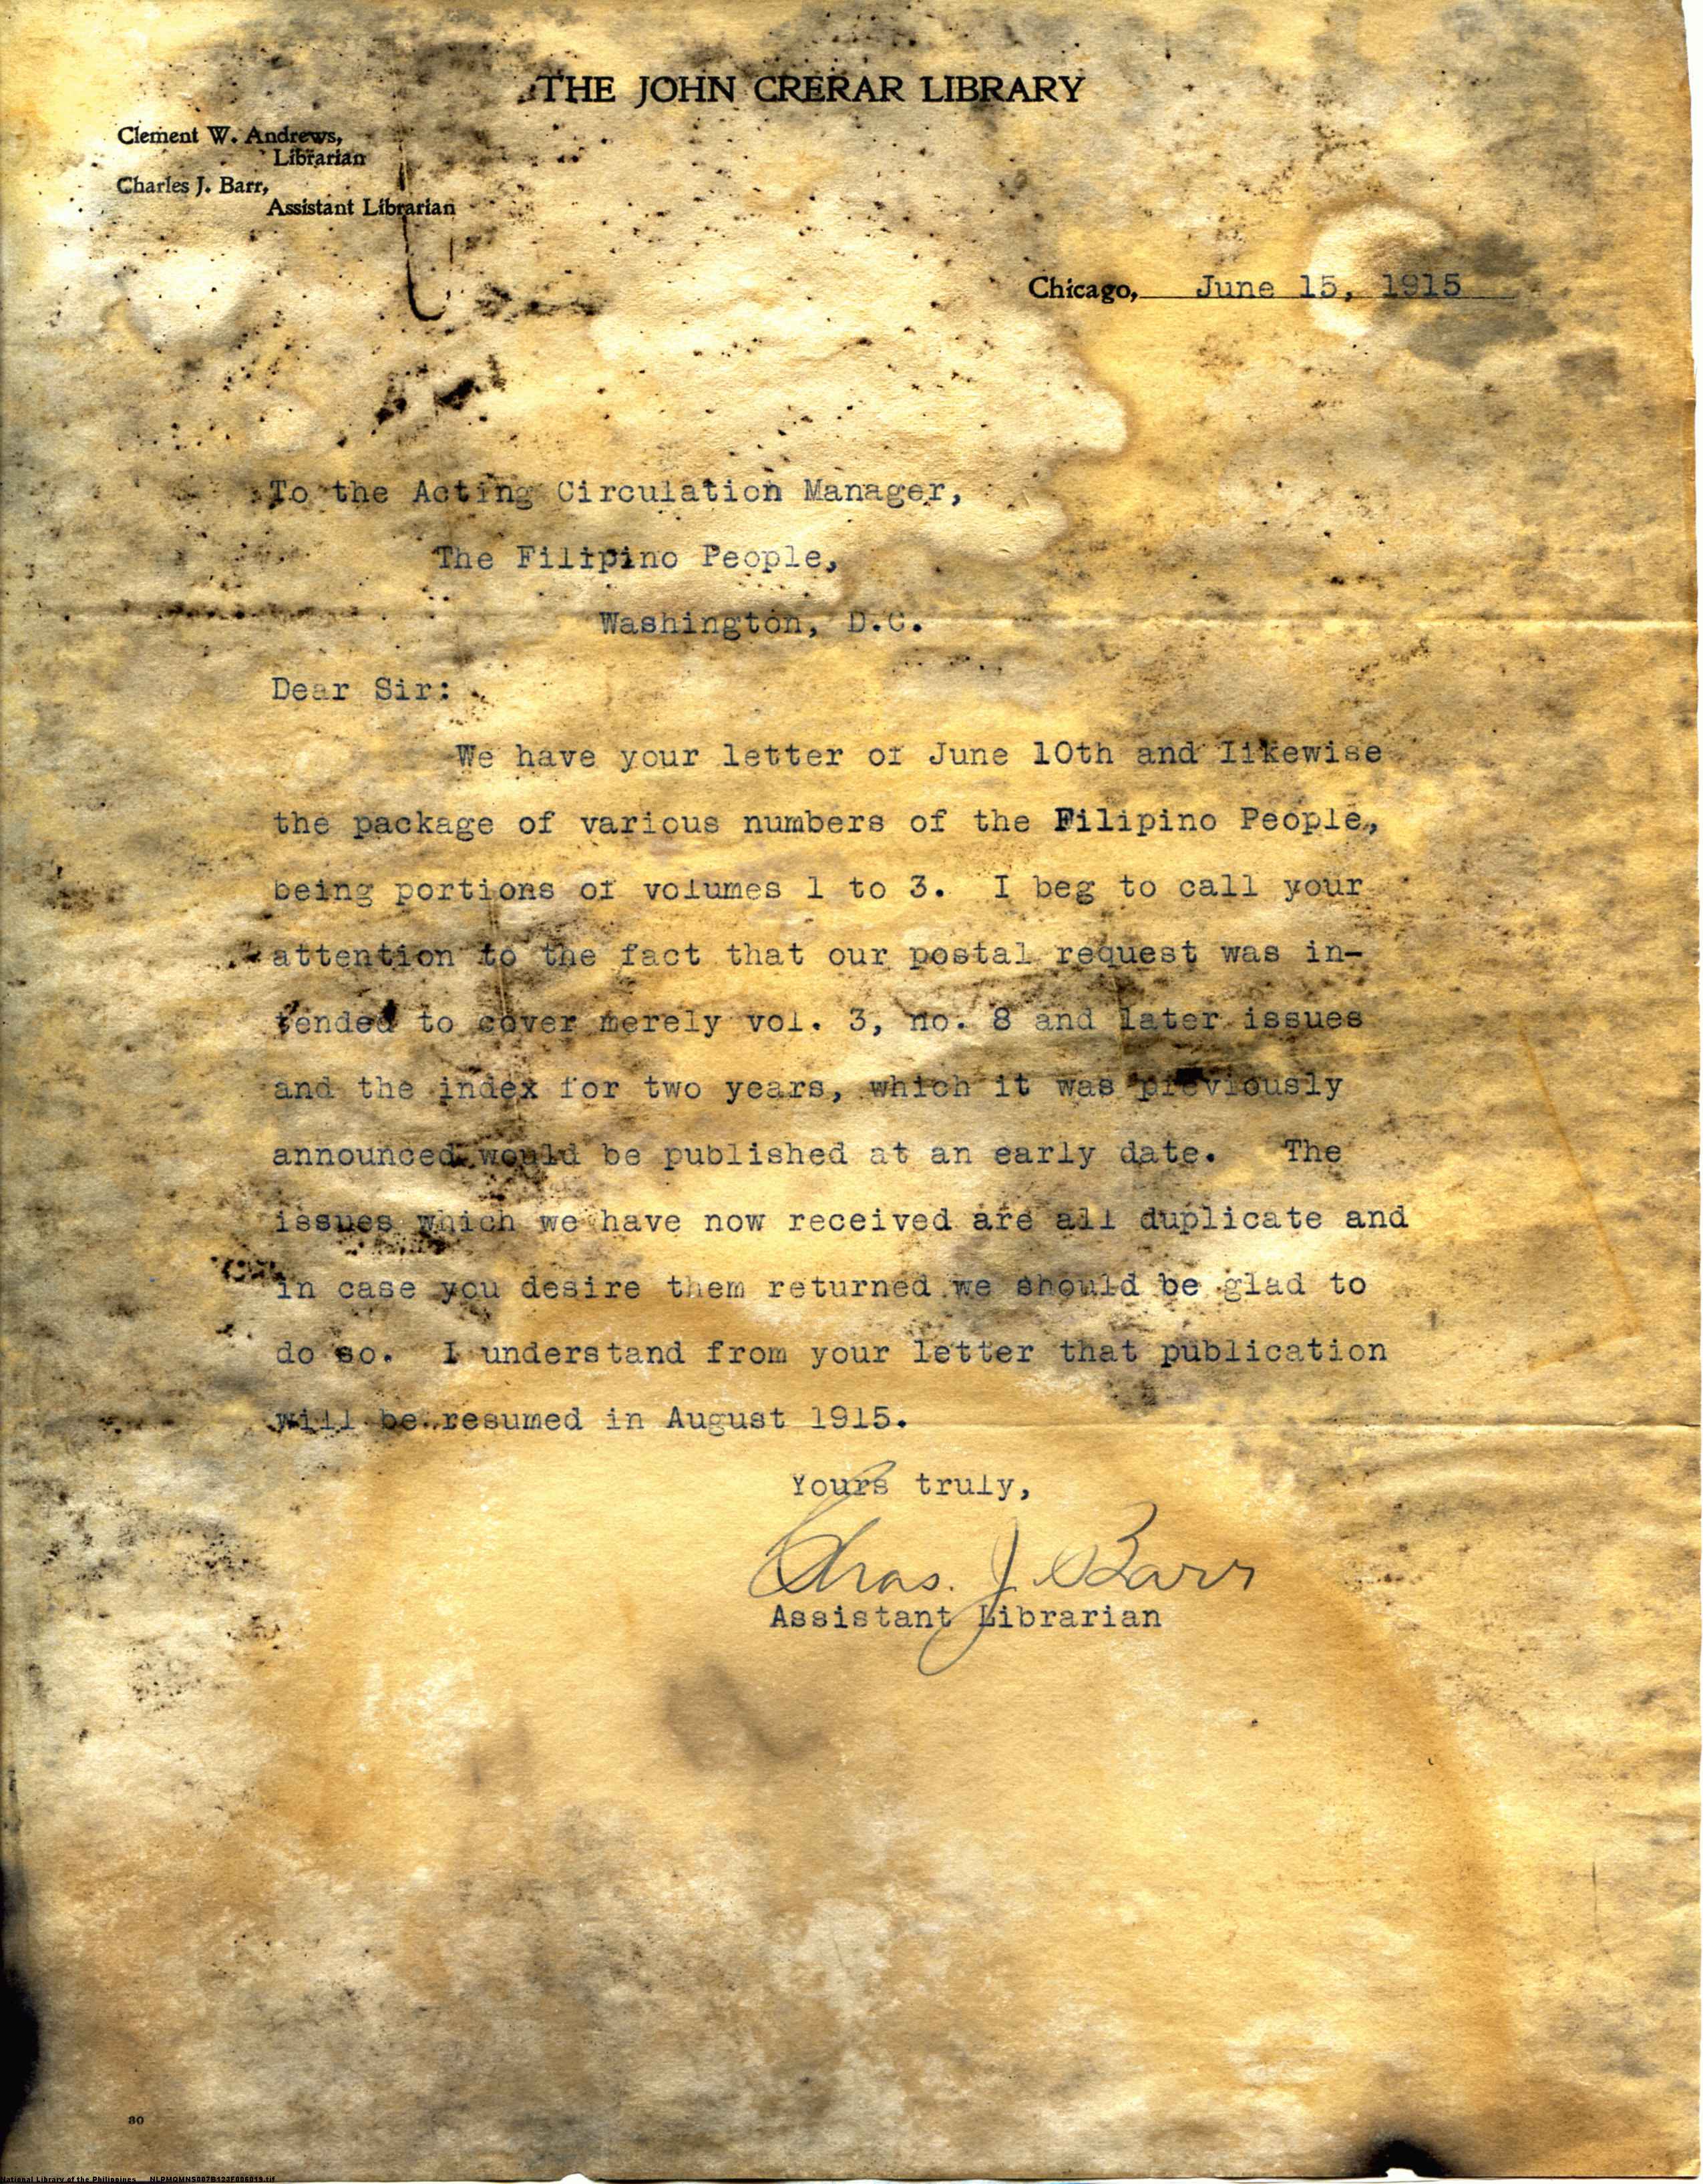 THE JOHN CRERAR LIBRARY
Clement W. Andrews,
Librarian
Charles J. Barr,
Assistant Librarian
Chicago, June 15, 1915
To the Acting Circulation Manager,
The Filipino People,
Washington, D.C.
Dear Sir:
We have your letter of June 10th and likewise
the package of various numbers of the Filipino People,
being portions of volumes 1 to 3. I beg to call your
attention to the fact that our postal request was in-
tended to cover merely vol. 3, no. 8 and later issues
and the index for two years, which it was previously
announced would be published at an early date. The
issues which we have now received are all duplicate and
in case you desire them returned we should be glad to
do so. I understand from your letter that publication
will be resumed in August 1915.
Yours truly,
Chas. J. Barr
Assistant Librarian
80
National Library of the Philippines